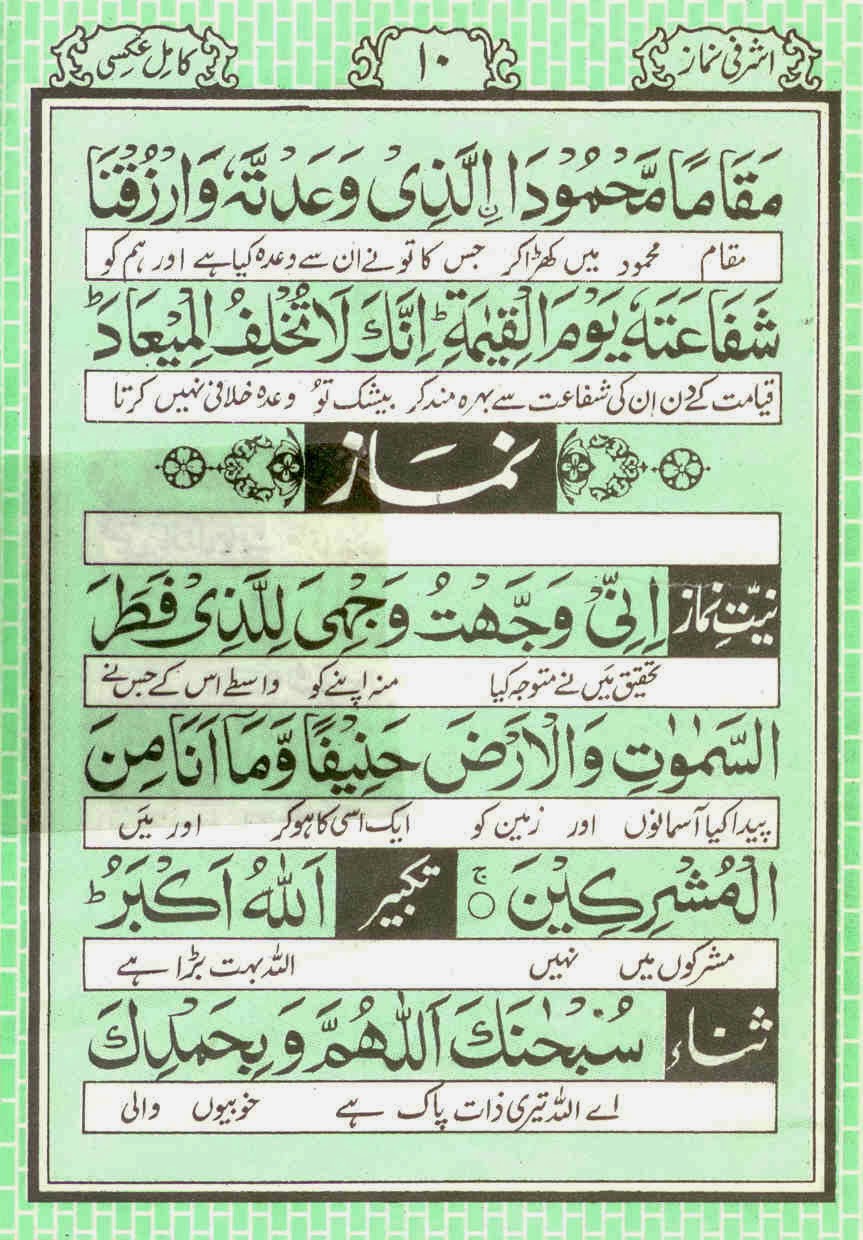 اشرفی نماز
۱۰
کامل عکسی
مَقَامًا مَّحْمُوْدَا ۨالَّذِیْ وَعَدْتَّهٗ وَارْزُقْنَا
مقام محمود میں کھڑا کر جس کا تو نے ان سے وعدہ کیا ہے اور ہم کو
شَفَاعَتَهٗ یَوْمَ الْقِیٰمَةِ ؕ اِنَّكَ لَا تُخْلِفُ الْمِیْعَادَ ؕ
قیامت کے دن ان کی شفاعت سے بہرہ مند کر بیشک تُو وعدہ خلافی نہیں کرتا
نَمَاز
نیّتِ نماز
اِنِّیْ وَجَّهْتُ وَجْهِیَ لِلَّذِیْ فَطَرَ
تحقیق مَیں نے متوجہ کیا منہ اپنے کو واسطے اس کے جس نے
السَّمٰوٰتِ وَالْاَرْضَ حَنِیْفًا وَّمَا اَنَا مِنَ
پیدا کیا آسمانوں اور زمین کو ایک اسی کا ہو کر اور مَیں
الْمُشْرِكِیْنَ ۚ○
تکبیر
اَللّٰهُ اَكْبَرُ ؕ
مشرکوں میں نہیں اللہ بہت بڑا ہے
ثناء
سُبْحٰنَكَ اَللّٰهُمَّ وَبِحَمْدِكَ
اے اللہ تیری ذات پاک ہے خوبیوں والی